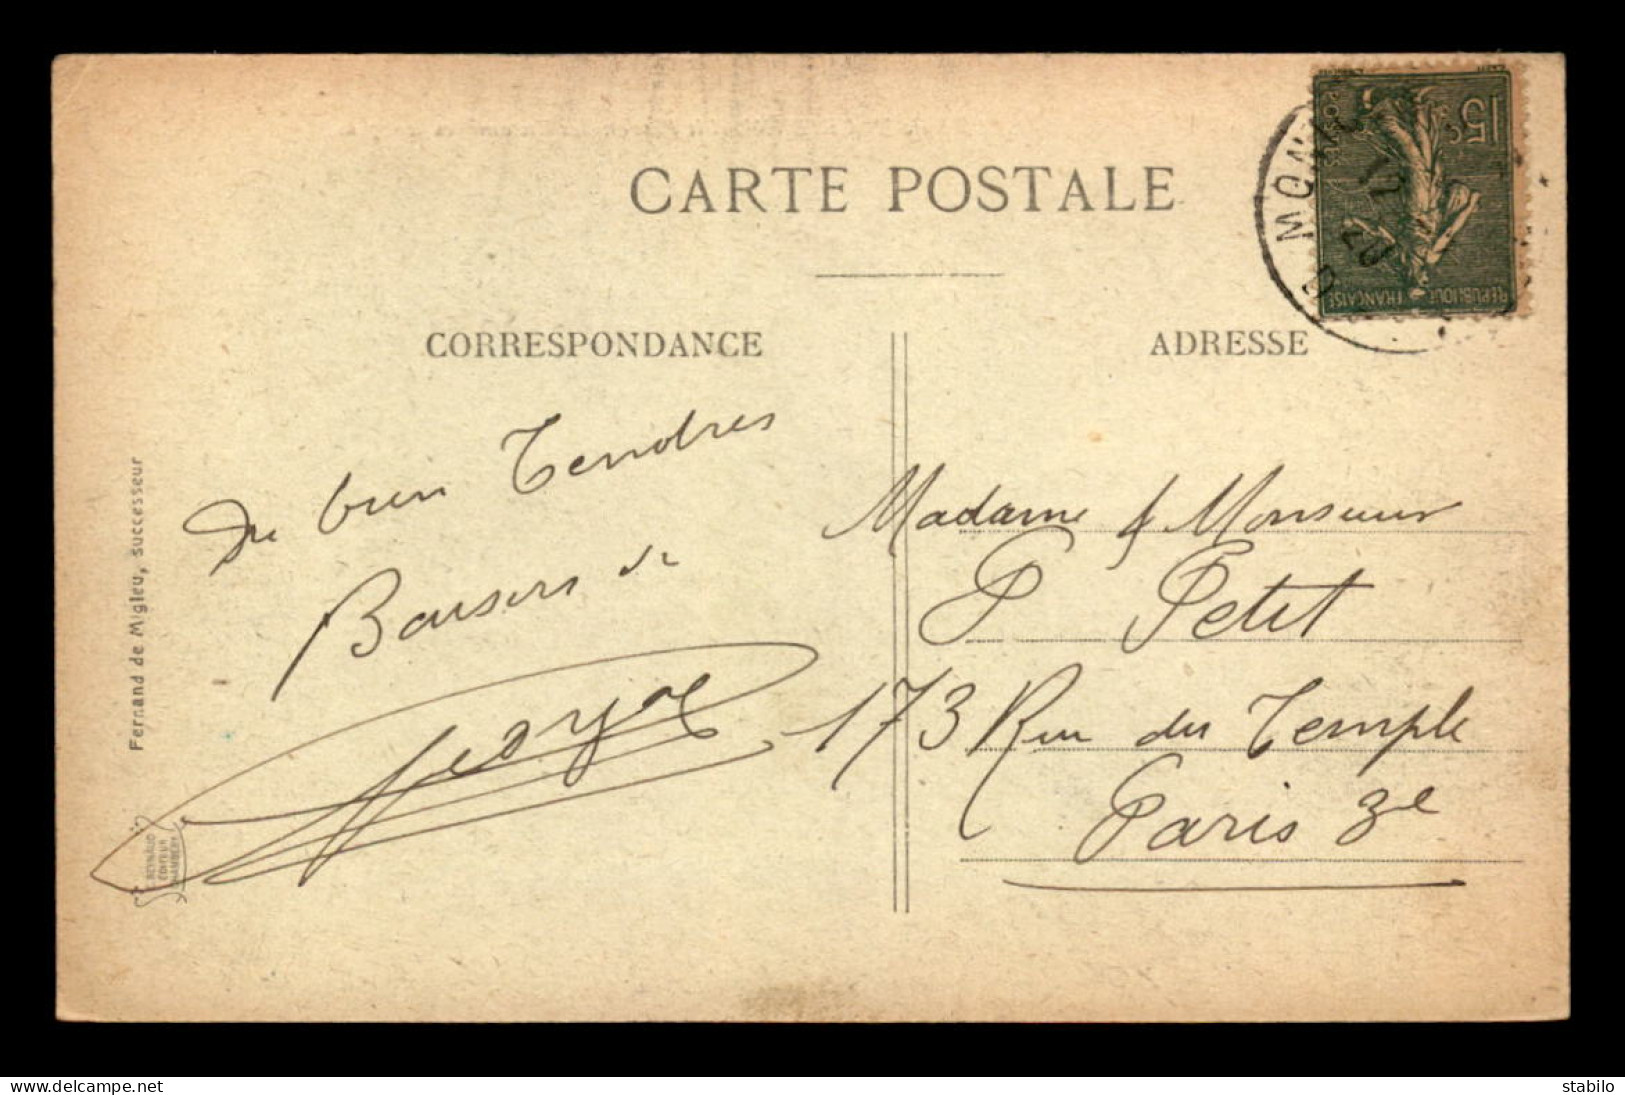 CARTE POSTALE
CORRESPONDANCE
De bien Tendres
Baisers de
George
Fernand de Migieu, successeur
REYNAUD
EDITEUR
CHAMBERY
15c
POSTES
REPUBLIQUE FRANÇAISE
MON
17
07
ADRESSE
Madame & Monsieur
P Petit
173 Rue du Temple
Paris 3e
www.delcampe.net
stabilo